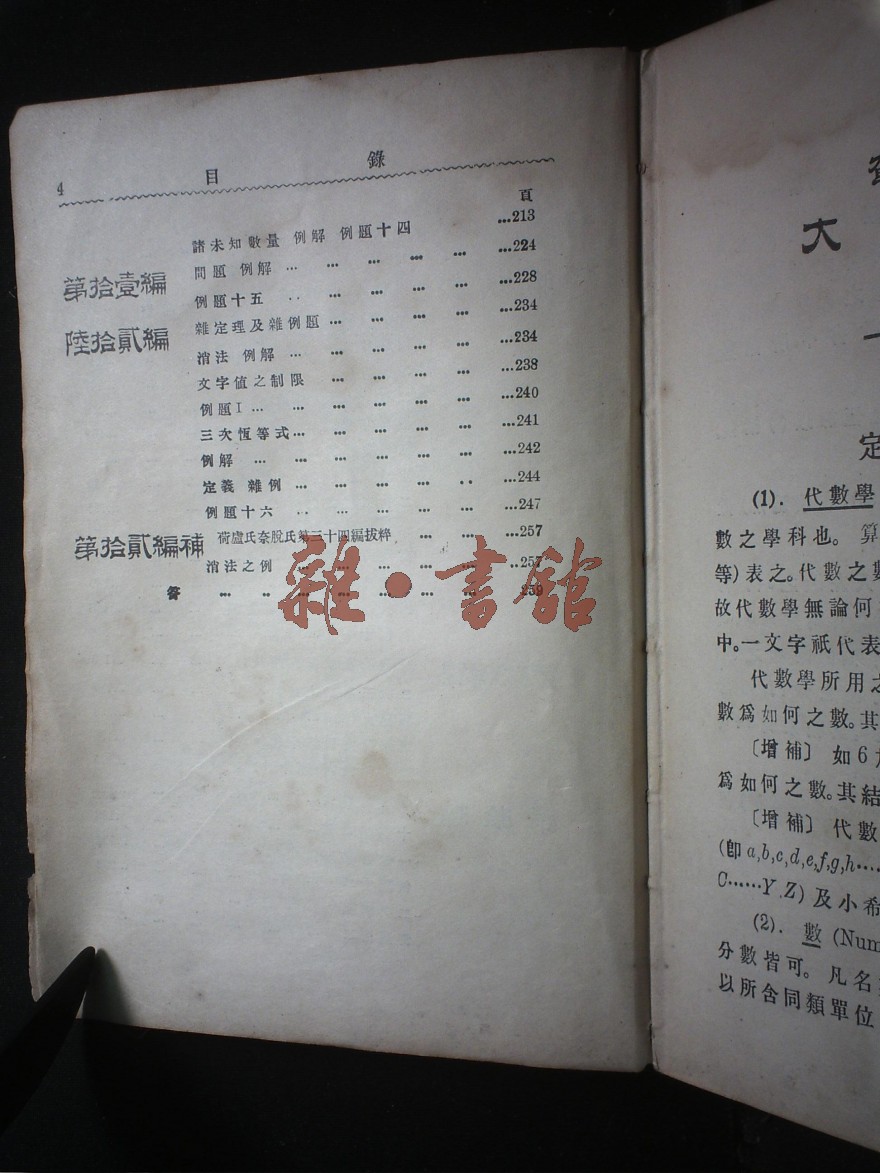 4 目 錄
頁
諸未知數量 例解 例題十四 ...213
第拾壹編 問題 例解 ... ... ... ... ... ...224
例題十五 .. ... ... ... ... ...228
陸拾貳編 雜定理及雜例題 ... ... ... ... ...234
消法 例解 ... ... ... ... ... ...234
文字値之制限 ... ... ... ... ...238
例題I ... ... ... ... ... ... ...240
三次恆等式 ... ... ... ... ... ...241
例解 ... ... ... ... ... ... ...242
定義 雜例 ... ... ... ... .. ...244
例題十六 .. ... ... ... ... ...247
第拾貳編補 荷盧氏奈脫氏第三十四編拔粹 ... ... ...257
消法之例 ... ... ... ... ... ..257
答 ... .. ... ... ... ... ... 259
雜·書館
大
定
(1). 代數學
數之學科也。算
等)表之。代數之數
故代數學無論何
中。一文字祇代表
代數學所用之
數爲如何之數。其
〔增補〕 如6
爲如何之數。其結
〔增補〕 代數
(卽a,b,c,d,e,f,g,h....
C......Y,Z)及小希
(2). 數 (Num
分數皆可。凡名
以所含同類單位